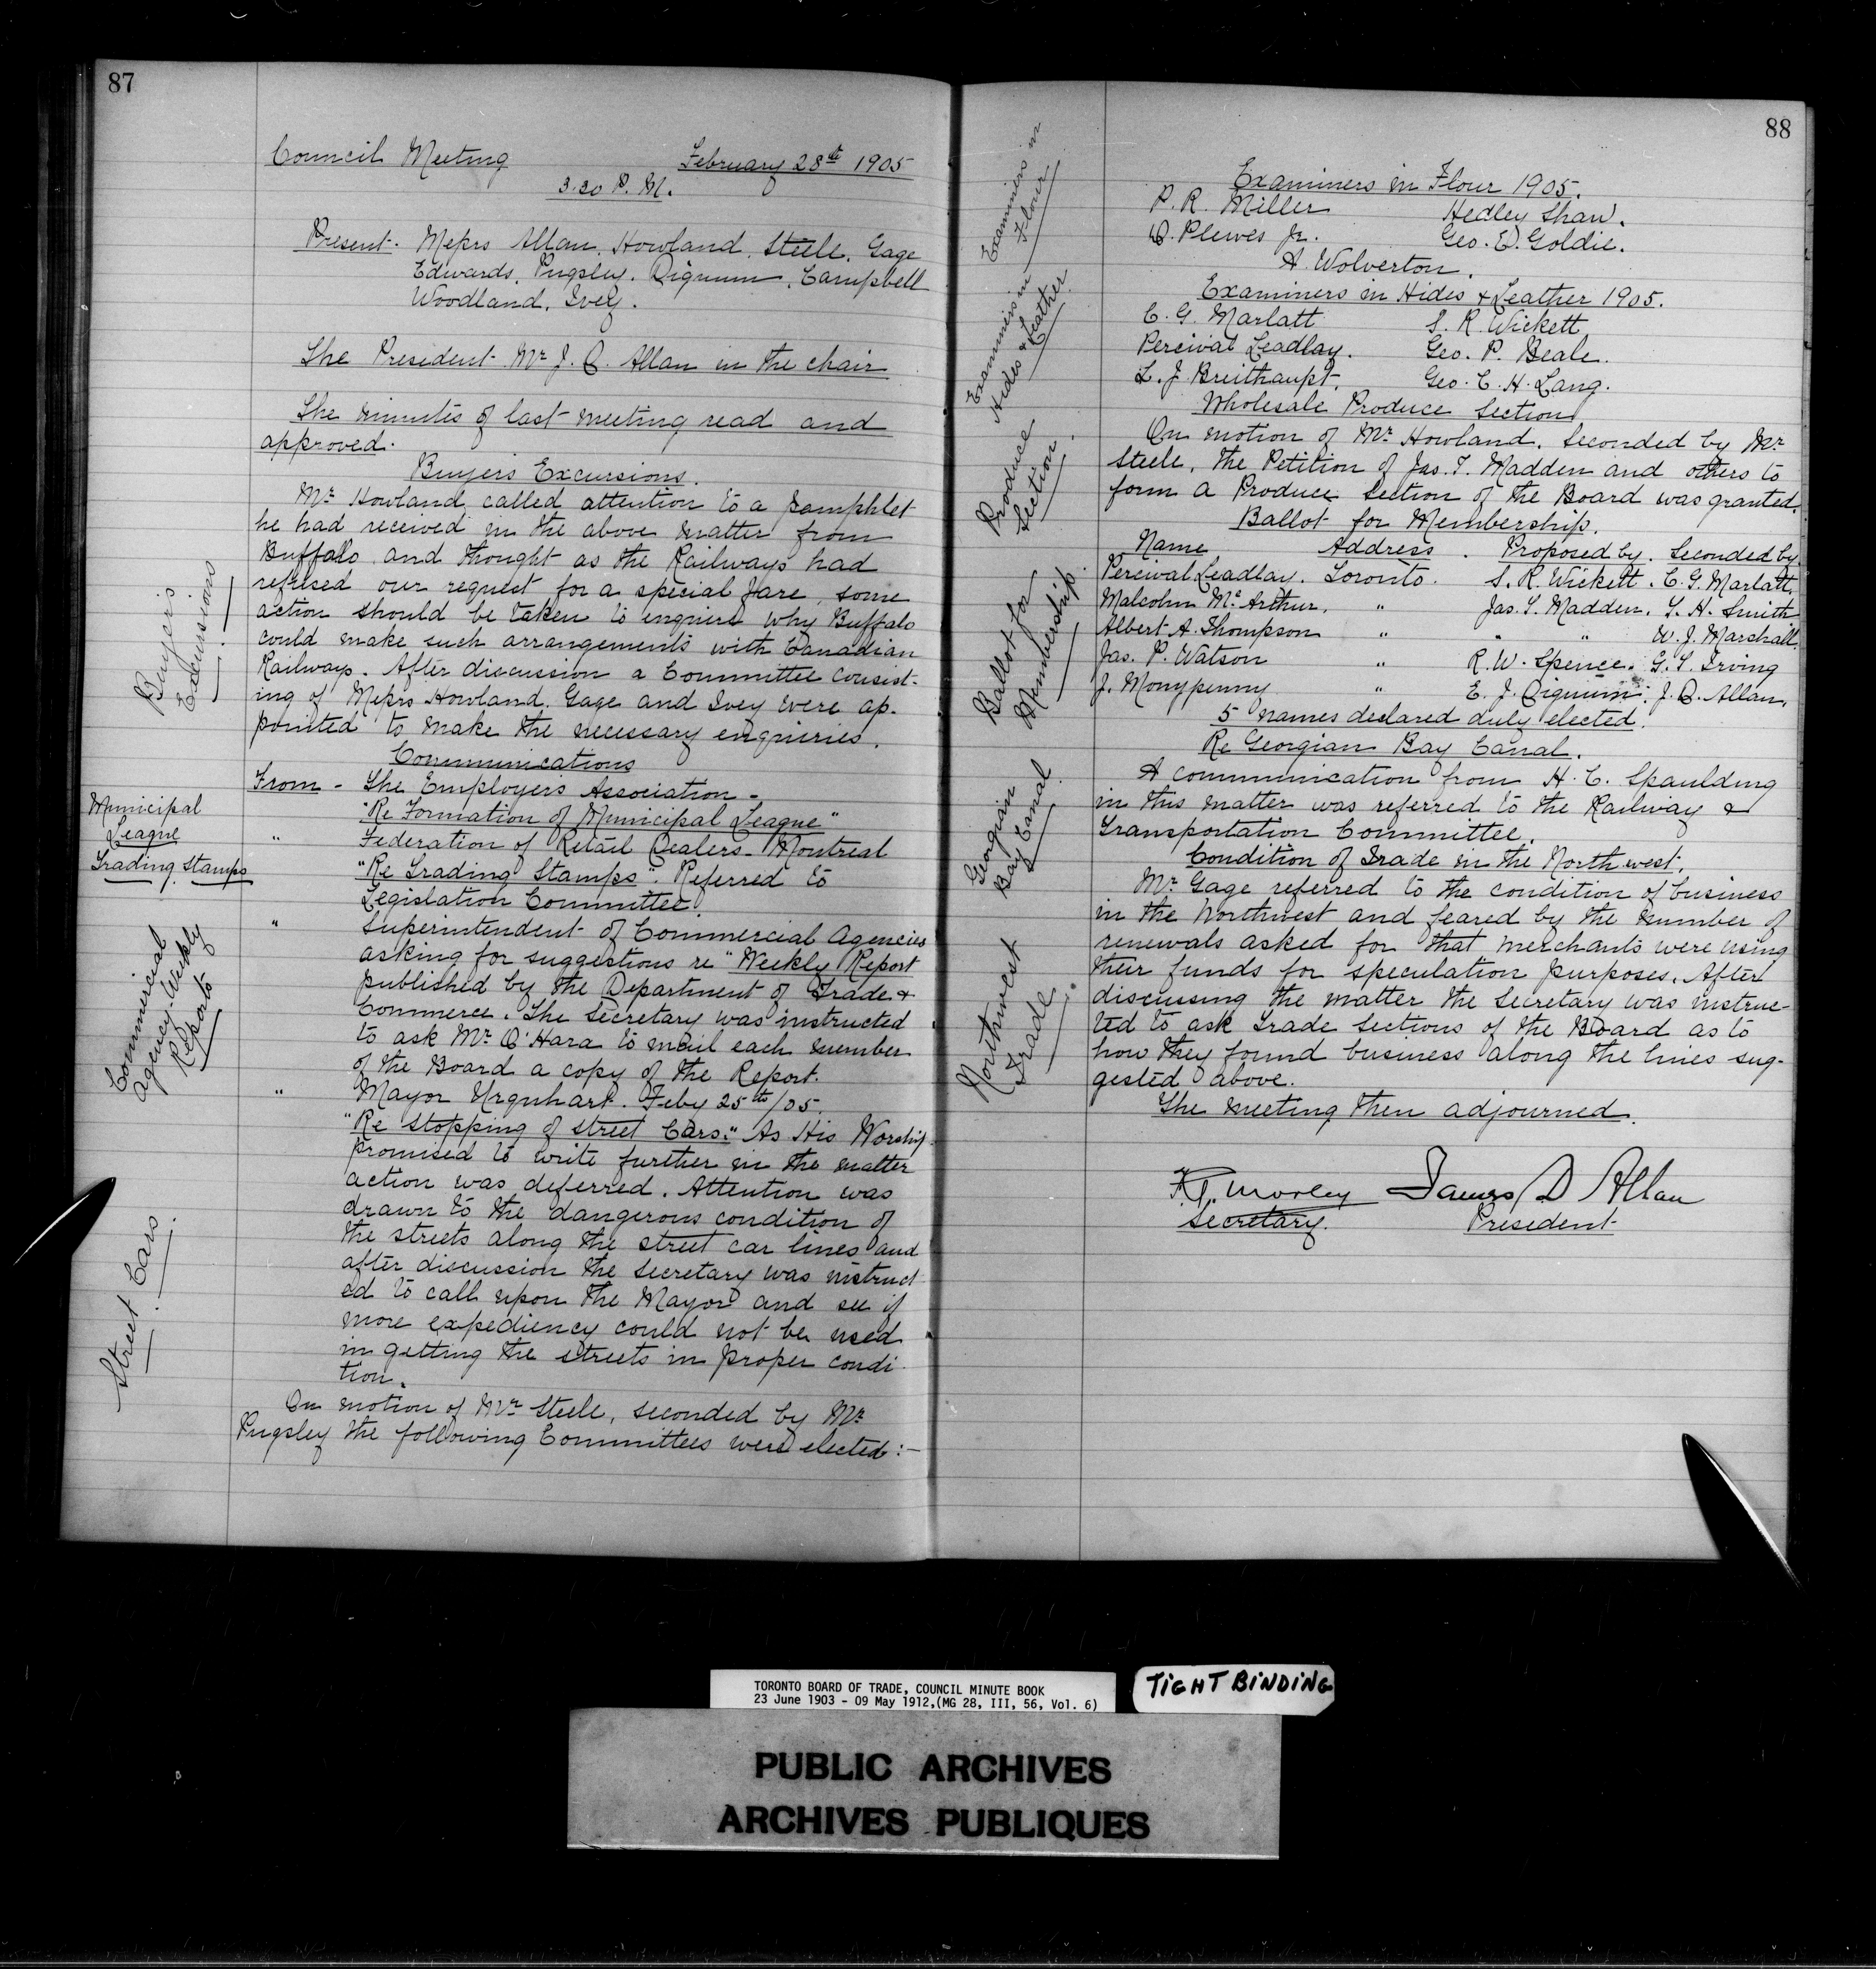 87
Council Meeting February 28th 1905
3.30 P. M.
Present. Messrs Allan. Howland. Steele. Gage
Edwards. Pugsley. Dignum. Campbell
Woodland. Ivey.
The President Mr J. D. Allan in the chair
The minutes of last meeting read and
approved.
Buyers Excursions.
Mr Howland called attention to a pamphlet
he had received in the above matter from
Buffalo and thought as the Railways had
refused our request for a special fare, some
action should be taken to enquire why Buffalo
could make such arrangements with Canadian
Railways. After discussion a Committee consist-
ing of Messrs Howland. Gage and Ivey were ap-
pointed to make the necessary enquiries.
Buyers
Excursions
Communications
From - The Employers Association -
"Re Formation of Municipal League"
Municipal
League
" Federation of Retail Dealers - Montreal
"Re Trading Stamps". Referred to
Legislation Committee.
Trading Stamps
" Superintendent of Commercial Agencies
asking for suggestions re "Weekly Report
published by the Department of Trade &
Commerce. The Secretary was instructed
to ask Mr O'Hara to mail each member
of the Board a copy of the Report.
Commercial
Agency Weekly
Reports
" Mayor Urquhart. Feby 25th/05.
"Re Stopping of Street Cars." As His Worship
promised to write further in the matter
action was deferred. Attention was
drawn to the dangerous condition of
the streets along the street car lines and
after discussion the Secretary was instruct
ed to call upon the Mayor and see if
more expediency could not be used
in getting the streets in proper condi-
tion.
Street Cars
On motion of Mr Steele, seconded by Mr
Pugsley the following Committees were elected:-
88
Examiners in Flour 1905.
P. R. Miller Hedley Shaw.
D. Plewes Jr. Geo. E. Goldie.
A. Wolverton.
Examiners in
Flour
Examiners in Hides & Leather 1905.
C. G. Marlatt S. R. Wickett
Percival Leadlay. Geo. P. Beale.
L. J. Breithaupt. Geo. C. H. Lang.
Examiners in
Hides & Leather
Wholesale Produce Section
On motion of Mr Howland. Seconded by Mr
Steele. The Petition of Jas. T. Madden and others to
form a Produce Section of the Board was granted.
Produce
Section.
Ballot for Membership.
Name Address. Proposed by. Seconded by.
Percival Leadlay. Toronto. S. R. Wickett. C. G. Marlatt.
Malcolm McArthur. " Jas. T. Madden. T. H. Smith
Albert A. Thompson " " " W. J. Marshall.
Jas. P. Watson " R. W. Spence. G. T. Irving
J. Monypenny " E. J. Dignum. J. D. Allan.
5 names declared duly elected.
Ballot for
Membership.
Re Georgian Bay Canal.
A communication from H. C. Spaulding
in this matter was referred to the Railway &
Transportation Committee.
Georgian
Bay Canal
Condition of Trade in the Northwest.
Mr Gage referred to the condition of business
in the Northwest and feared by the number of
renewals asked for that merchants were using
their funds for speculation purposes. After
discussing the matter the Secretary was instruc-
ted to ask Trade Sections of the Board as to
how they found business along the lines sug-
gested above.
Northwest
Trade.
The meeting then adjourned.
F. G. Morley James D Allan
Secretary. President
TORONTO BOARD OF TRADE, COUNCIL MINUTE BOOK
23 June 1903 - 09 May 1912,(MG 28, III, 56, Vol. 6)
TIGHT BINDING
PUBLIC ARCHIVES
ARCHIVES PUBLIQUES